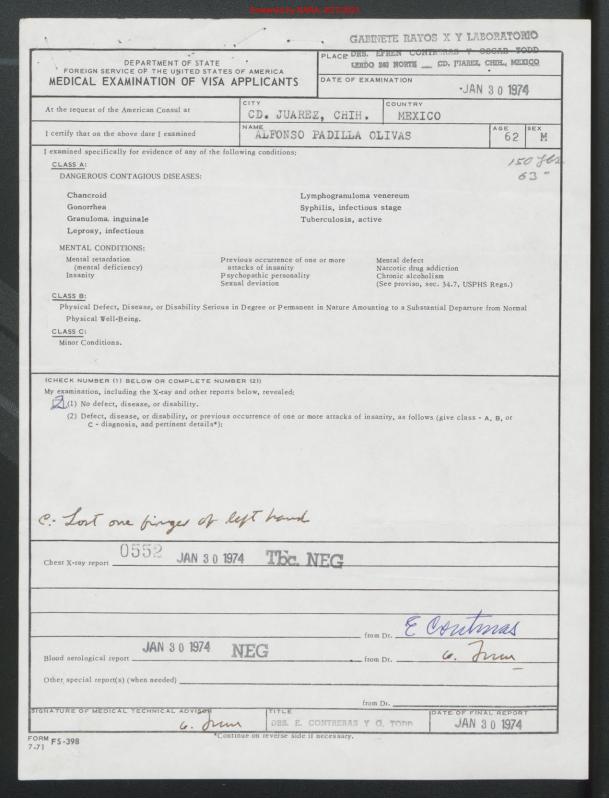 GABINETE RAYOS X Y LABORATORIO
DEPARTMENT OF STATE
FOREIGN SERVICE OF THE UNITED STATES OF AMERICA
MEDICAL EXAMINATION OF VISA APPLICANTS
PLACE DRS. EFREN CONTRERAS Y OSCAR TODD
LERDO NORTE CD. JUAREZ, CHIH., MEXICO
DATE OF EXAMINATION
JAN 30 1974
At the request of the American Consul at
CITY
CD. JUAREZ, CHIH.
COUNTRY
MEXICO
I certify that on the above date I examined
NAME
ALFONSO PADILLA OLIVAS
AGE
62
SEX
M
I examined specifically for evidence of any of the following conditions:
150
63"
CLASS A:
DANGEROUS CONTAGIOUS DISEASES:
Chancroid
Gonorrhea
Granuloma inguinale
Leprosy, infectious
Lymphogranuloma venereum
Syphilis, infectious stage
Tuberculosis, active
MENTAL CONDITIONS:
Mental retardation
(mental deficiency)
Insanity
Previous occurrence of one or more
attacks of insanity
Psychopathic personality
Sexual deviation
Mental defect
Narcotic drug addiction
Chronic alcoholism
(See proviso, sec. 34.7, USPHS Regs.)
CLASS B:
Physical Defect, Disease, or Disability Serious in Degree or Permanent in Nature Amounting to a Substantial Departure from Normal
Physical Well-Being.
CLASS C:
Minor Conditions.
(CHECK NUMBER (1) BELOW OR COMPLETE NUMBER (2))
My examination, including the X-ray and other reports below, revealed:
(1) No defect, disease, or disability.
(2) Defect, disease, or disability, or previous occurrence of one or more attacks of insanity, as follows (give class - A, B, or
C - diagnosis, and pertinent details*):
C: Lost one finger of left hand
Chest X-ray report 0552 JAN 30 1974 Tbc. NEG
from Dr. E Contreras
Blood serological report JAN 30 1974 NEG
from Dr.
Other special report(s) (when needed)
from Dr.
SIGNATURE OF MEDICAL TECHNICAL ADVISOR
TITLE
DRS. E. CONTRERAS Y O. TODD
DATE OF FINAL REPORT
JAN 30 1974
FORM FS-398
7-71
*Continue on reverse side if necessary.